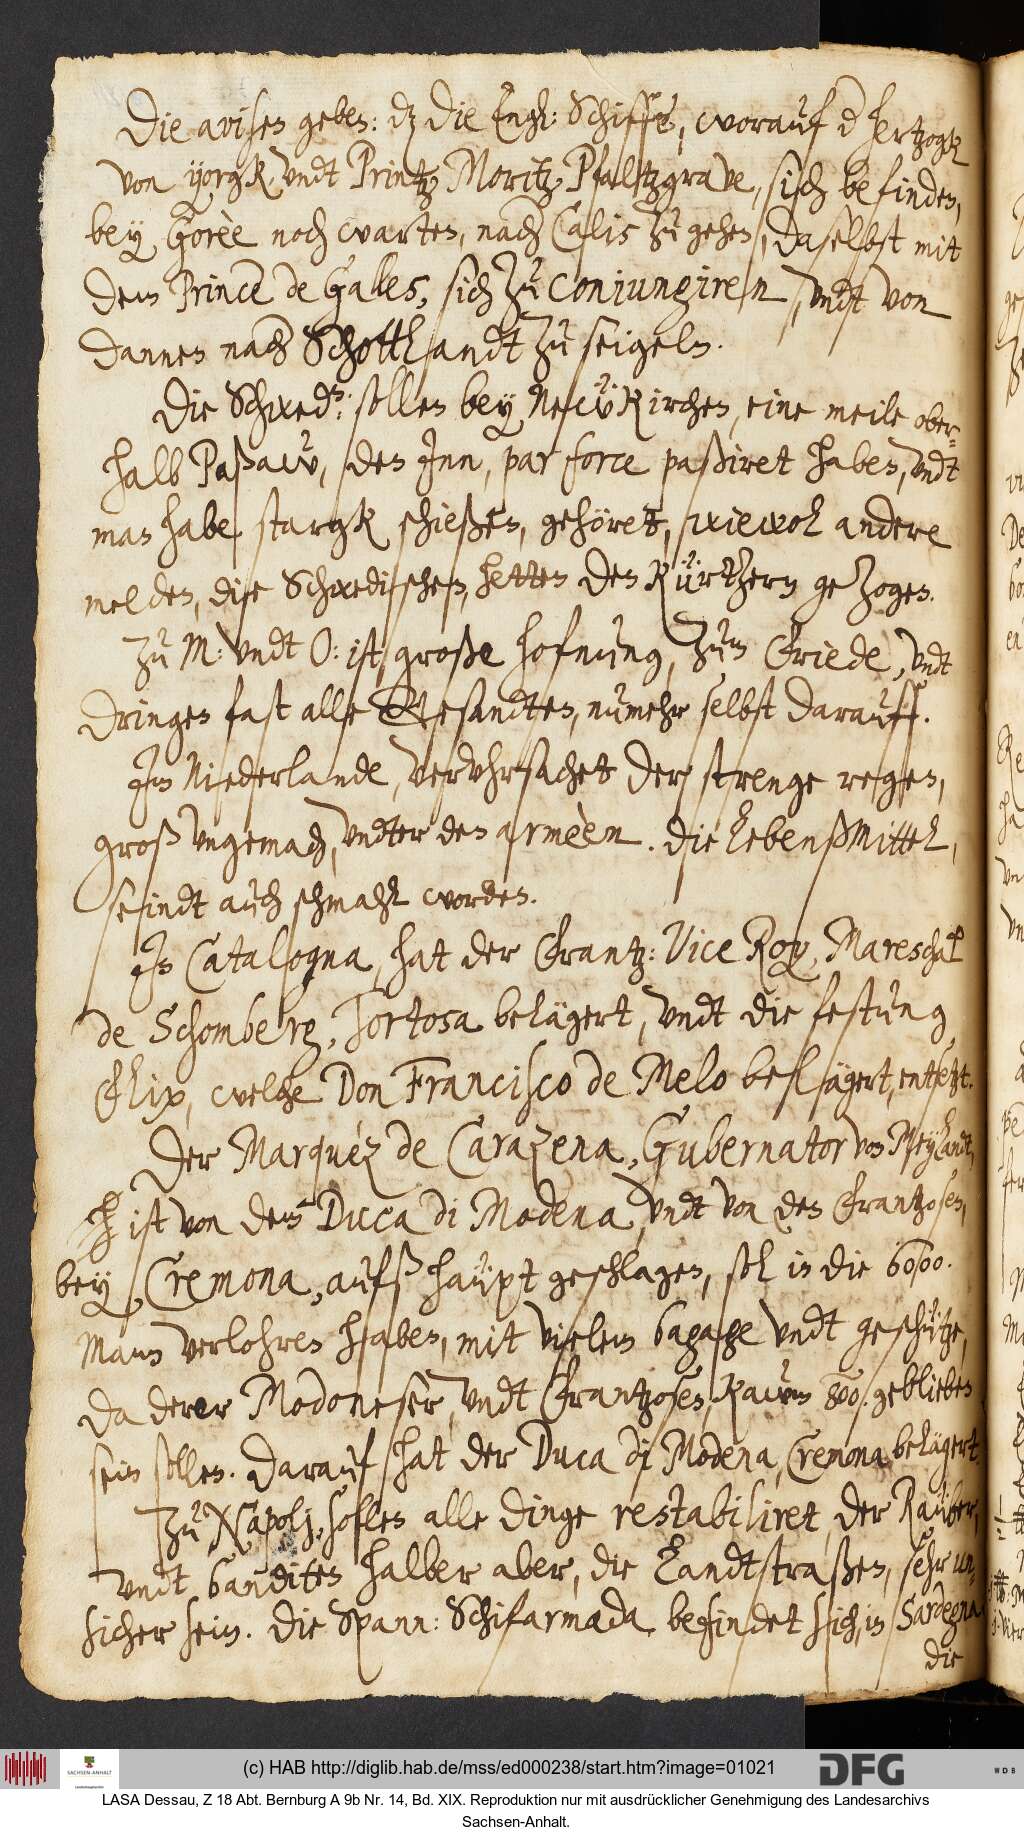 Die avisen geben: dz die Engl: Schiffe, worauf d hertzogk
von Yorgk, vndt Printz Moritz Pfaltzgrave, sich befinden,
bey Gorèe noch warten, nach Calis zu gehen, daselbst mit
dem Prince de Galles, sich zu conjungiren, vndt von
dannen nach Schottlandt zu seigeln.
Die Schwed: sollen bey Newkirchen, eine meile ober-
halb Paßaw, den Inn, par force paßiret haben, vndt
man habe stargk schießen, gehöret, wiewol andere
melden, die Schwedischen, hetten den kürtzern gezogen.
Zu M: vndt O: ist große hofnung, zum Friede, vndt
dringen fast alle Gesandten, numehr selbst darauff.
Im Niederlande, veruhrsachet der strenge regen,
groß vngemach, vndter den armèen. die LebensMittel,
seindt auch schmahl worden.
In Catalogna, hat der Frantz: Vice Roy, Mareschal
de Schomberg, Tortosa belägert, vndt die festung
Flix, welche Don Francisco de Melo belägert, entsetzt.
Der Marquéz de Carazena, Gubernator von Meylandt,
ist von dem Duca di Modena, vndt von den Frantzosen,
bey Cremona, aufs haüpt geschlagen, sol in die 6000.
Mann verlohren haben, mit vielem bagage vndt geschütze,
da derer Modoneser, vndt Frantzosen, kaum 800. geblieben
sein sollen. Darauf hat der Duca di Modena, Cremona belägert.
Zu Napolj, sollen alle dinge restabiliret, der Raüber,
vndt banditen halber aber, die Landtstraßen, sehr un-
sicher sein. Die Spann: Schifarmada befindet sich, in Sardegna
die
(c) HAB http://diglib.hab.de/mss/ed000238/start.htm?image=01021
DFG
WDB
SACHSEN-ANHALT
LASA Dessau, Z 18 Abt. Bernburg A 9b Nr. 14, Bd. XIX. Reproduktion nur mit ausdrücklicher Genehmigung des Landesarchivs
Sachsen-Anhalt.